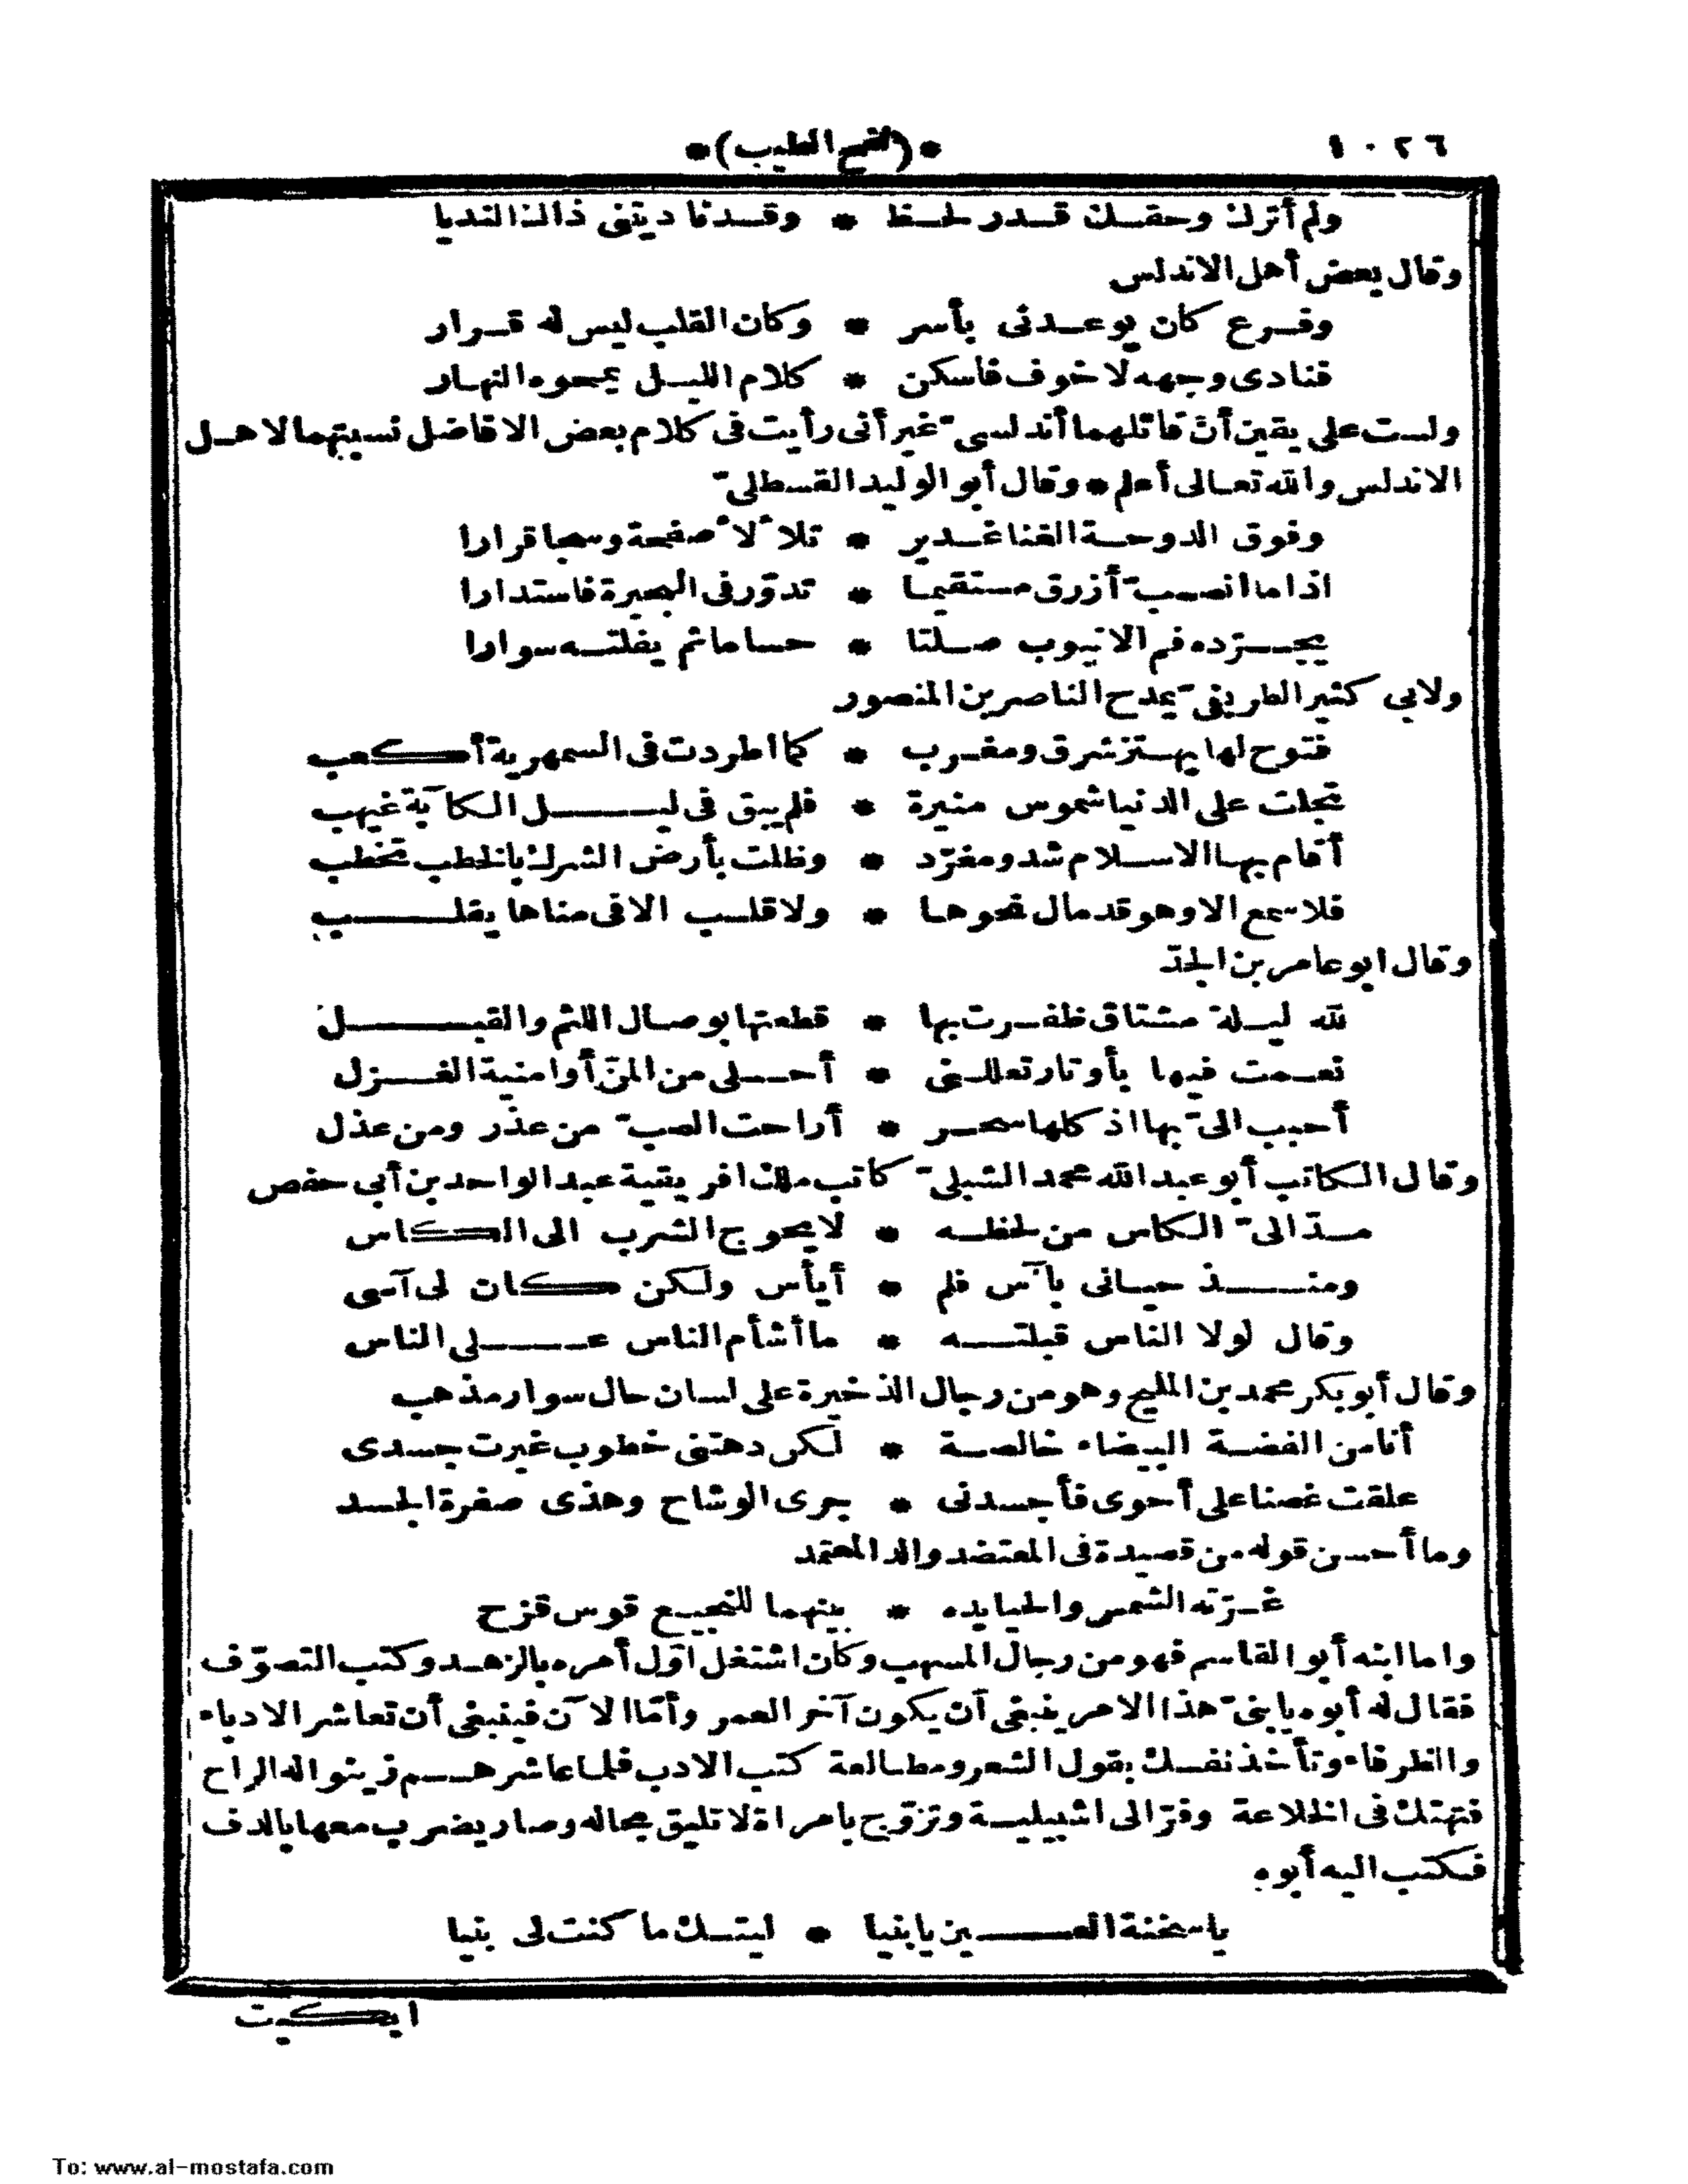 ١٠٢٦ *(نفح الطيب)*
ولم أترك وحقك قدر لحظ * وقد ناديتنى ذاك النديا
وقال بعض أهل الاندلس
وفرع كان يوعدنى بأسر * وكان القلب ليس له قرار
فنادى وجهه لا خوف فاسكن * كلام الليل يمحوه النهار
ولست على يقين أنّ قائلهما أندلسىّ غير أنى رأيت فى كلام بعض الافاضل نسبتهما لاهل
الاندلس والله تعالى أعلم * وقال أبو الوليد القسطلىّ
وفوق الدوحة الغنا غدير * تلألأ صفحة وسجا قرارا
اذا ما انصبّ أزرق مستقيما * تدوّر فى البحيرة فاستدارا
يجرّده فم الانبوب صلتا * حساما ثم يفلته سوارا
ولابى كثير الطريفىّ يمدح الناصر بن المنصور
فتوح لها يهتز شرق ومغرب * كما اطردت فى السمهرية أكعب
تجلت على الدنيا شموس منيرة * فلم يبق فى ليل الكآبة غيهب
أقام بها الاسلام شدو مغرّد * وظلت بأرض الشرك بالخطب تخطب
فلا سمع الا وهو قد مال نحوها * ولا قلب الا فى مناها يقلب
وقال ابو عامر بن الجدّ
لله ليلة مشتاق ظفرت بها * قطعتها بوصال اللثم والقبل
نعمت فيها بأوتار تعللنى * أحلى من المنّ أو امنية الغزل
أحبب الىّ بها اذ كلها سحر * أراحت الصبّ من عذر ومن عذل
وقال الكاتب أبو عبد الله محمد الشبلىّ كاتب ملك افريقية عبد الواحد بن أبى حفص
مدّ الىّ الكاس من لحظه * لا يحوج الشرب الى الكاس
ومنذ حيانى بآس فلم * أيأس ولكن كان لى آسى
وقال لولا الناس قبلته * ما أشأم الناس على الناس
وقال أبو بكر محمد بن الملح وهو من رجال الذخيرة على لسان حال سوار مذهب
أنا من الفضة البيضاء خالصة * لكن دهتنى خطوب غيرت جسدى
علقت غصنا على أحوى فأحسدنى * جرى الوشاح وهذى صفرة الحسد
وما أحسن قوله من قصيدة فى المعتضد والد المعتمد
غرّته الشمس والحيا يده * بينهما للنجيع قوس قزح
واما ابنه أبو القاسم فهو من رجال المسهب وكان اشتغل اوّل أمره بالزهد وكتب التصوّف
فقال له أبوه يا بنىّ هذا الامر ينبغى أن يكون آخر العمر وأمّا الآن فينبغى أن تعاشر الادباء
والظرفاء وتأخذ نفسك بقول الشعر ومطالعة كتب الادب فلما عاشرهم زينوا له الراح
فتهتك فى الخلاعة وفرّ الى اشبيلية وتزوّج بامراة لا تليق بحاله وصار يضرب معها بالدف
فكتب اليه أبوه
يا سخنة العين يا بنيا * ليتك ما كنت لى بنيا
ابكيت
To: www.al-mostafa.com